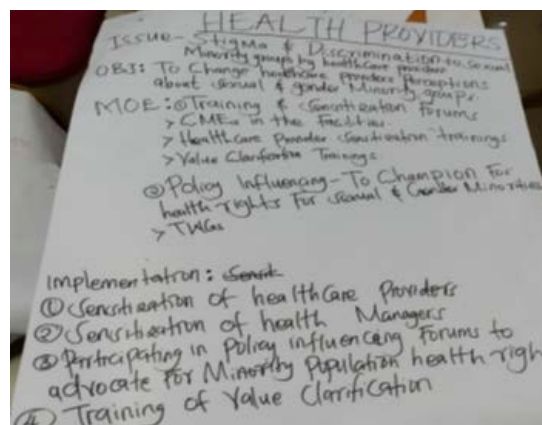 HEALTH PROVIDERS
ISSUE - Stigma & Discrimination to sexual
Minority groups by healthcare providers
OBJ: To Change healthcare providers Perceptions
about sexual & gender Minority groups.
MOE: ① Training & Sensitization Forums
> CMEs in the Facilities.
> Healthcare Provider Sensitization trainings
> Value Clarification Trainings.
② Policy Influencing - To Champion For
health rights For Sexual & Gender Minorities
> TWGs
Implementation:
① Sensitization of healthcare Providers
② Sensitization of health Managers
③ Participating in Policy influencing Forums to
advocate For Minority Population health righ
④ Training of Value Clarification